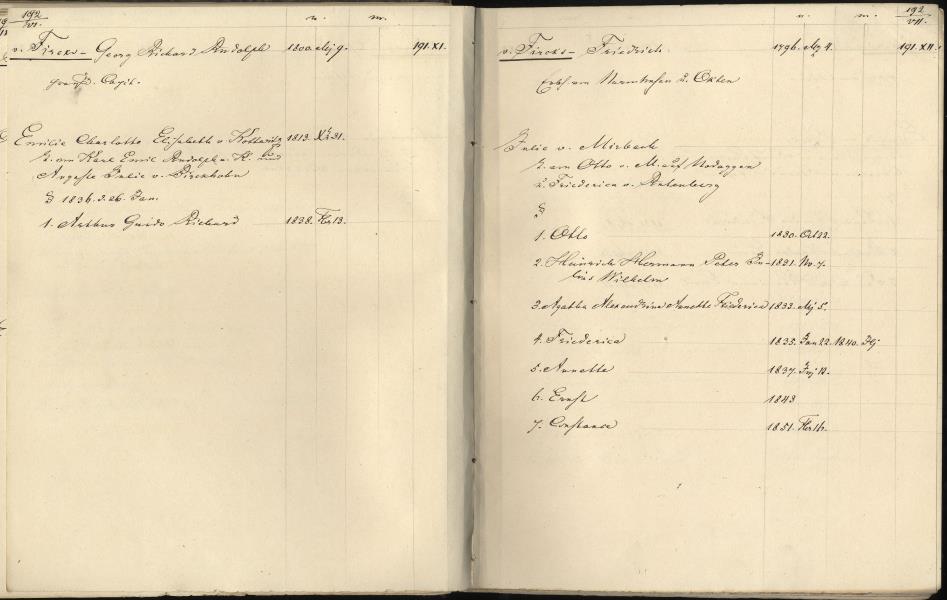 192
VI.
n. m.
v. Fircks - Georg Richard Rudolph 1800. Mj 9. 191. XI.
Capit.
Emilie Charlotte Elisabeth v. Kottwitz 1813. Xr 31.
T. von Karl Emil Rudolph v. K. und
Auguste Julie v. Birckhahn
§ 1836. d. 26. Jan.
1. Arthur Guido Richard 1838. Fbr 13.
192
VII.
n. m.
v. Fircks - Friedrich 1796. Mz 4. 191. XII.
Erbh. von Wormsahten u. Okten
Julie v. Mirbach
T. von Otto v. M. auf Nodaggen
u. Friederica v. Rutenberg
§
1. Otto 1830. Oct 22.
2. Heinrich Hermann Peter Ju- 1831. Nv. 7.
lius Wilhelm
3. Agathe Alexandrine Annette Friederica 1833. Mj 5.
4. Friederica 1835. Jan 22. 1840. Jlj
5. Annette 1837.
6. Ernst 1843
7. Constance 1851. Fbr 16.